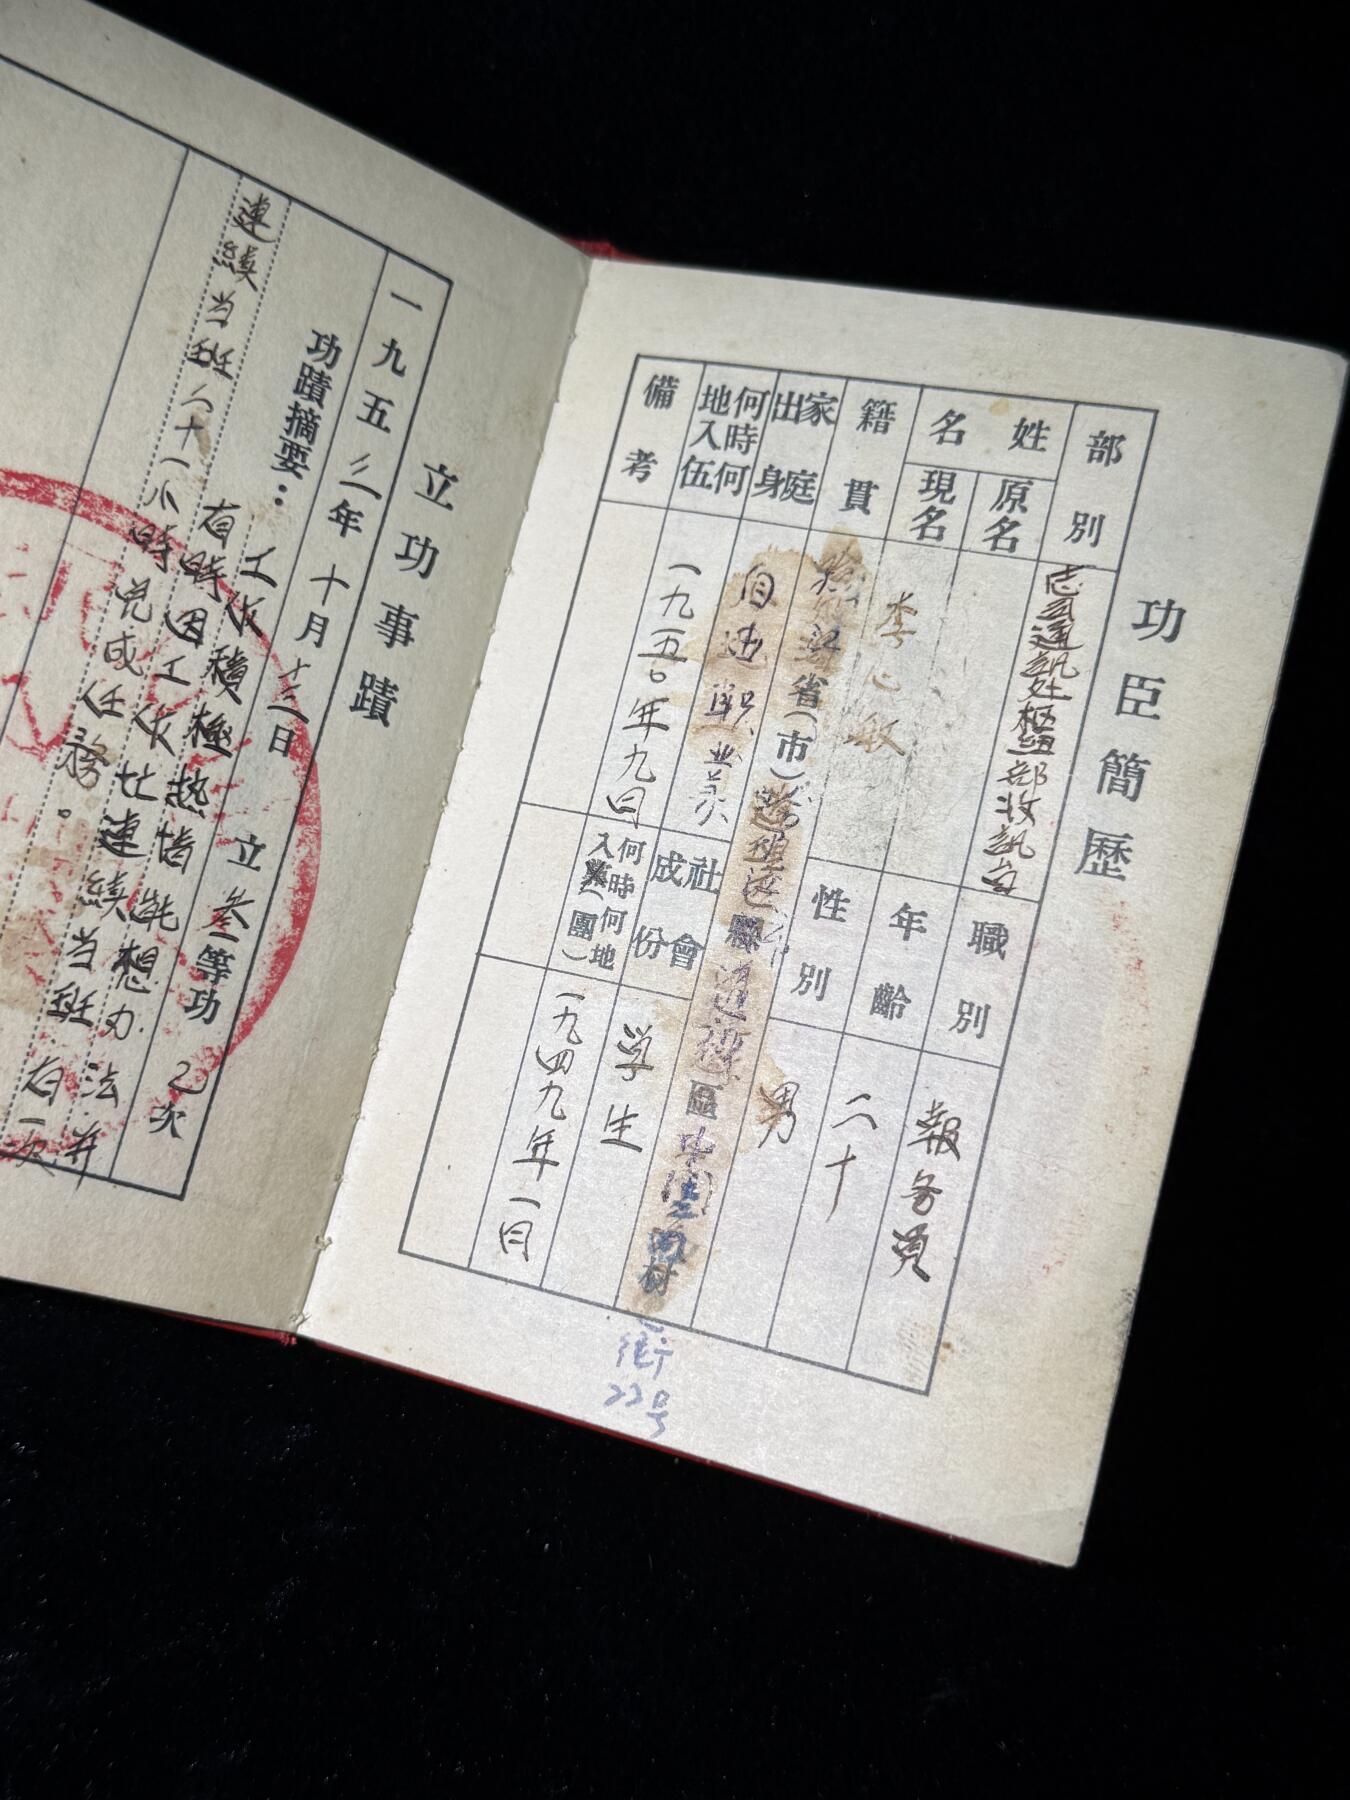 功臣簡歷
部別
志司通訊处樞纽部收訊台
職別
報务員
姓名
原名
現名
李心敏
年齡
二十
性別
男
籍貫
省(市)
縣
區
村
街
22号
家庭出身
自由职业
何時何地入伍
一九五〇年九月
社會成份
学生
備考
何時何地入党(團)
一九四九年一月
立功事蹟
一九五三年十月十三日
立叁等功乙次
功蹟摘要:
工作積極热情能想办法并
有時因工作忙連續当班有一次
連續当班八十一小時完成任務。